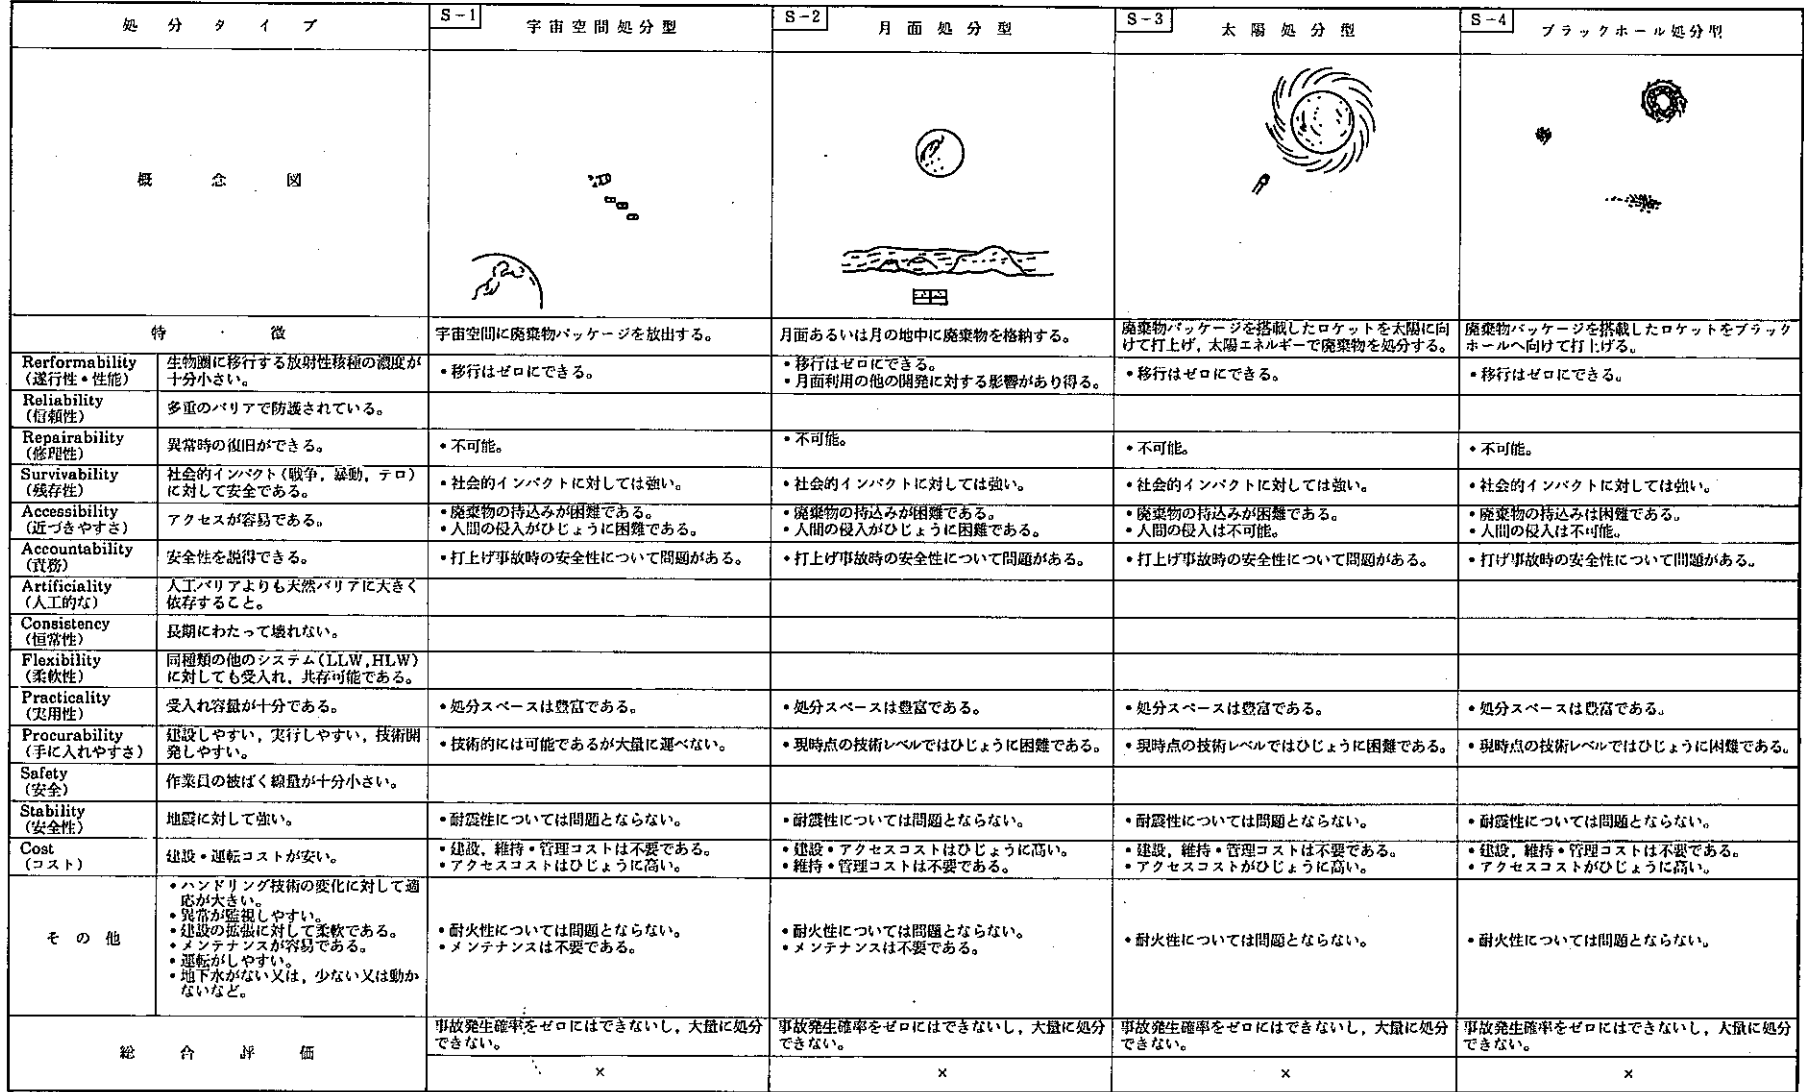 処分タイプ
S-1
宇宙空間処分型
S-2
月面処分型
S-3
太陽処分型
S-4
ブラックホール処分型
概念図
特徴
宇宙空間に廃棄物パッケージを放出する。
月面あるいは月の地中に廃棄物を格納する。
廃棄物パッケージを搭載したロケットを太陽に向
けて打上げ，太陽エネルギーで廃棄物を処分する。
廃棄物パッケージを搭載したロケットをブラック
ホールへ向けて打上げる。
Rerformability
（遂行性・性能）
生物圏に移行する放射性核種の濃度が
十分小さい。
・移行はゼロにできる。
・移行はゼロにできる。
・月面利用の他の開発に対する影響があり得る。
・移行はゼロにできる。
・移行はゼロにできる。
Reliability
（信頼性）
多重のバリアで防護されている。
Repairability
（修理性）
異常時の復旧ができる。
・不可能。
・不可能。
・不可能。
・不可能。
Survivability
（残存性）
社会的インパクト（戦争，暴動，テロ）
に対して安全である。
・社会的インパクトに対しては強い。
・社会的インパクトに対しては強い。
・社会的インパクトに対しては強い。
・社会的インパクトに対しては強い。
Accessibility
（近づきやすさ）
アクセスが容易である。
・廃棄物の持込みが困難である。
・人間の侵入がひじょうに困難である。
・廃棄物の持込みが困難である。
・人間の侵入がひじょうに困難である。
・廃棄物の持込みが困難である。
・人間の侵入は不可能。
・廃棄物の持込みは困難である。
・人間の侵入は不可能。
Accountability
（責務）
安全性を説得できる。
・打上げ事故時の安全性について問題がある。
・打上げ事故時の安全性について問題がある。
・打上げ事故時の安全性について問題がある。
・打げ事故時の安全性について問題がある。
Artificiality
（人工的な）
人工バリアよりも天然バリアに大きく
依存すること。
Consistency
（恒常性）
長期にわたって壊れない。
Flexibility
（柔軟性）
同種類の他のシステム（LLW，HLW）
に対しても受入れ，共存可能である。
Practicality
（実用性）
受入れ容量が十分である。
・処分スペースは豊富である。
・処分スペースは豊富である。
・処分スペースは豊富である。
・処分スペースは豊富である。
Procurability
（手に入れやすさ）
建設しやすい，実行しやすい，技術開
発しやすい。
・技術的には可能であるが大量に運べない。
・現時点の技術レベルではひじょうに困難である。
・現時点の技術レベルではひじょうに困難である。
・現時点の技術レベルではひじょうに困難である。
Safety
（安全）
作業員の被ばく線量が十分小さい。
Stability
（安全性）
地震に対して強い。
・耐震性については問題とならない。
・耐震性については問題とならない。
・耐震性については問題とならない。
・耐震性については問題とならない。
Cost
（コスト）
建設・運転コストが安い。
・建設，維持・管理コストは不要である。
・アクセスコストはひじょうに高い。
・建設・アクセスコストはひじょうに高い。
・維持・管理コストは不要である。
・建設，維持・管理コストは不要である。
・アクセスコストがひじょうに高い。
・建設，維持・管理コストは不要である。
・アクセスコストがひじょうに高い。
その他
・ハンドリング技術の変化に対して適
応が大きい。
・異常が監視しやすい。
・建設の拡張に対して柔軟である。
・メンテナンスが容易である。
・運転がしやすい。
・地下水がない又は，少ない又は動か
ないなど。
・耐火性については問題とならない。
・メンテナンスは不要である。
・耐火性については問題とならない。
・メンテナンスは不要である。
・耐火性については問題とならない。
・耐火性については問題とならない。
総合評価
事故発生確率をゼロにはできないし，大量に処分
できない。
事故発生確率をゼロにはできないし，大量に処分
できない。
事故発生確率をゼロにはできないし，大量に処分
できない。
事故発生確率をゼロにはできないし，大量に処分
できない。
×
×
×
×